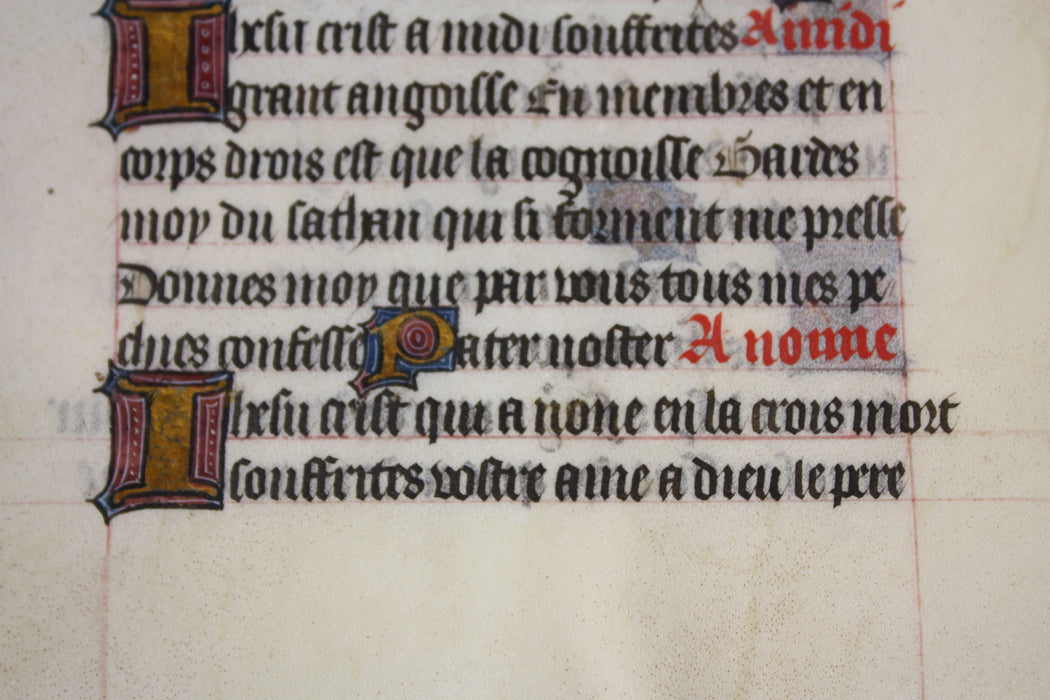 Ihesu crist a midi souffrites A midi
grant angoisse En membres et en
corps drois est que la cognoisse Gardes
moy du sathan qui si forment me presse
Donnes moy que par vous tous mes pe
ches confesse Pater noster A nonne
Ihesu crist qui a none en la crois mort
souffrites vostre ame a dieu le pere